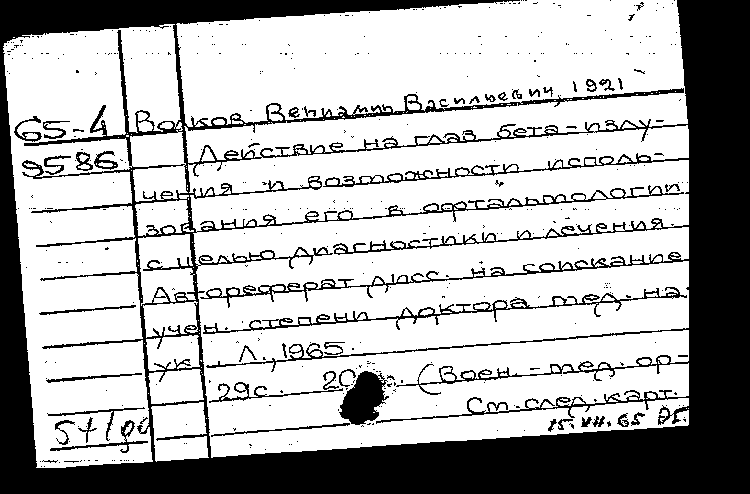 Волков, Вениамин Васильевич, 1921
65-4
9586
Действие на глаз бета-излу-
чения и возможности исполь-
зования его в офтальмологии
с целью диагностики и лечения.
Автореферат дисс. на соискание
учен. степени доктора мед. на-
ук. Л., 1965.
29с. 20 (Воен.-мед. ор-
См. след. карт.